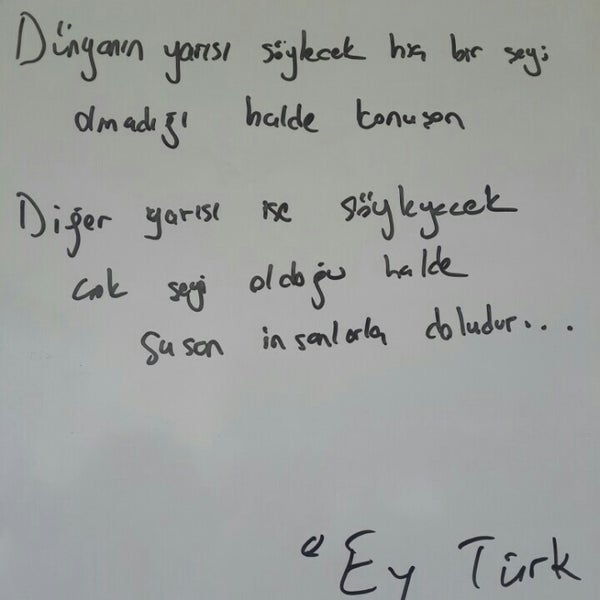 Dünyanın yarısı söylecek hiç bir şeyi
olmadığı halde konuşan
Diğer yarısı ise söyleyecek
çok şeyi olduğu halde
Susan insanlarla doludur...
"Ey Türk